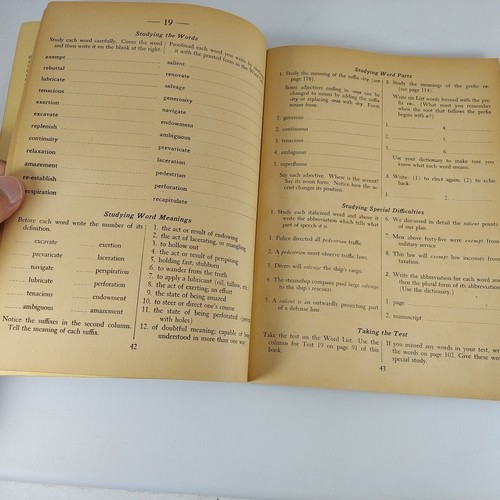 — 19 —
Studying the Words
Study each word carefully. Cover the word
and then write it on the blank at the right.
exempt
rebuttal
lubricate
tenacious
exertion
excavate
replenish
continuity
relaxation
amazement
re-establish
respiration
Proofread each word you write by
it with the printed form in the Word
salient
renovate
salvage
generosity
navigate
endowment
ambiguous
prevaricate
laceration
pedestrian
perforation
recapitulate
Studying Word Meanings
Before each word write the number of its
definition.
excavate exertion
prevaricate laceration
navigate perspiration
lubricate perforation
tenacious endowment
ambiguous amazement
Notice the suffixes in the second column.
Tell the meaning of each suffix.
1. the act or result of endowing
2. the act of lacerating, or mangling
3. to hollow out
4. the act or result of perspiring
5. holding fast; stubborn
6. to wander from the truth
7. to apply a lubricant (oil, tallow, etc.)
8. the act of exerting; an effort
9. the state of being amazed
10. to steer or direct one's course
11. the state of being perforated
with holes)
12. of doubtful meaning; capable of
understood in more than one
42
Studying Word Parts
1. Study the meaning of the suffix -ity (see
page 118).
Some adjectives ending in -ous can be
changed to nouns by adding the suffix
-ity or replacing -ous with -ity. Form
nouns from:
1. generous
2. continuous
3. tenacious
4. ambiguous
5. superfluous
Say each adjective. Where is the accent?
Say its noun form. Notice how the ac-
cent changes its position.
2. Study the meanings of the prefix re-
(see page 114).
Write on List words formed with the pre-
fix re-. (What must you remember
when the root that follows the prefix
begins with e?)
1. 4.
2. 5.
3. 6.
Use your dictionary to make sure you
know what each word means.
3. Write: (1) to elect again; (2) to echo
back.
1. 2.
Studying Special Difficulties
1. Study each italicized word and above it
write the abbreviation which tells what
part of speech it is.
1. Police directed all pedestrian traffic.
2. A pedestrian must observe traffic laws.
3. Divers will salvage the ship's cargo.
4. The steamship company paid large salvage
to the ship's rescuers.
5. A salient is an outwardly projecting part
of a defense line.
6. We discussed in detail the salient points
of our plan.
7. Men above forty-five were exempt from
military service.
8. This law will exempt low incomes from
taxation.
2. Write the abbreviation for each word and
then the plural form of its abbreviation.
(Use the dictionary.)
1. page
2. manuscript
Taking the Test
Take the test on the Word List. Use the
column for Test 19 on page 91 of this
book.
If you missed any words in your test, write
the words on page 102. Give these words
special study.
43